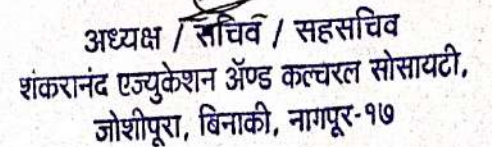 अध्यक्ष / सचिव / सहसचिव
शंकरानंद एज्युकेशन ॲण्ड कल्चरल सोसायटी,
जोशीपूरा, बिनाकी, नागपूर-१७